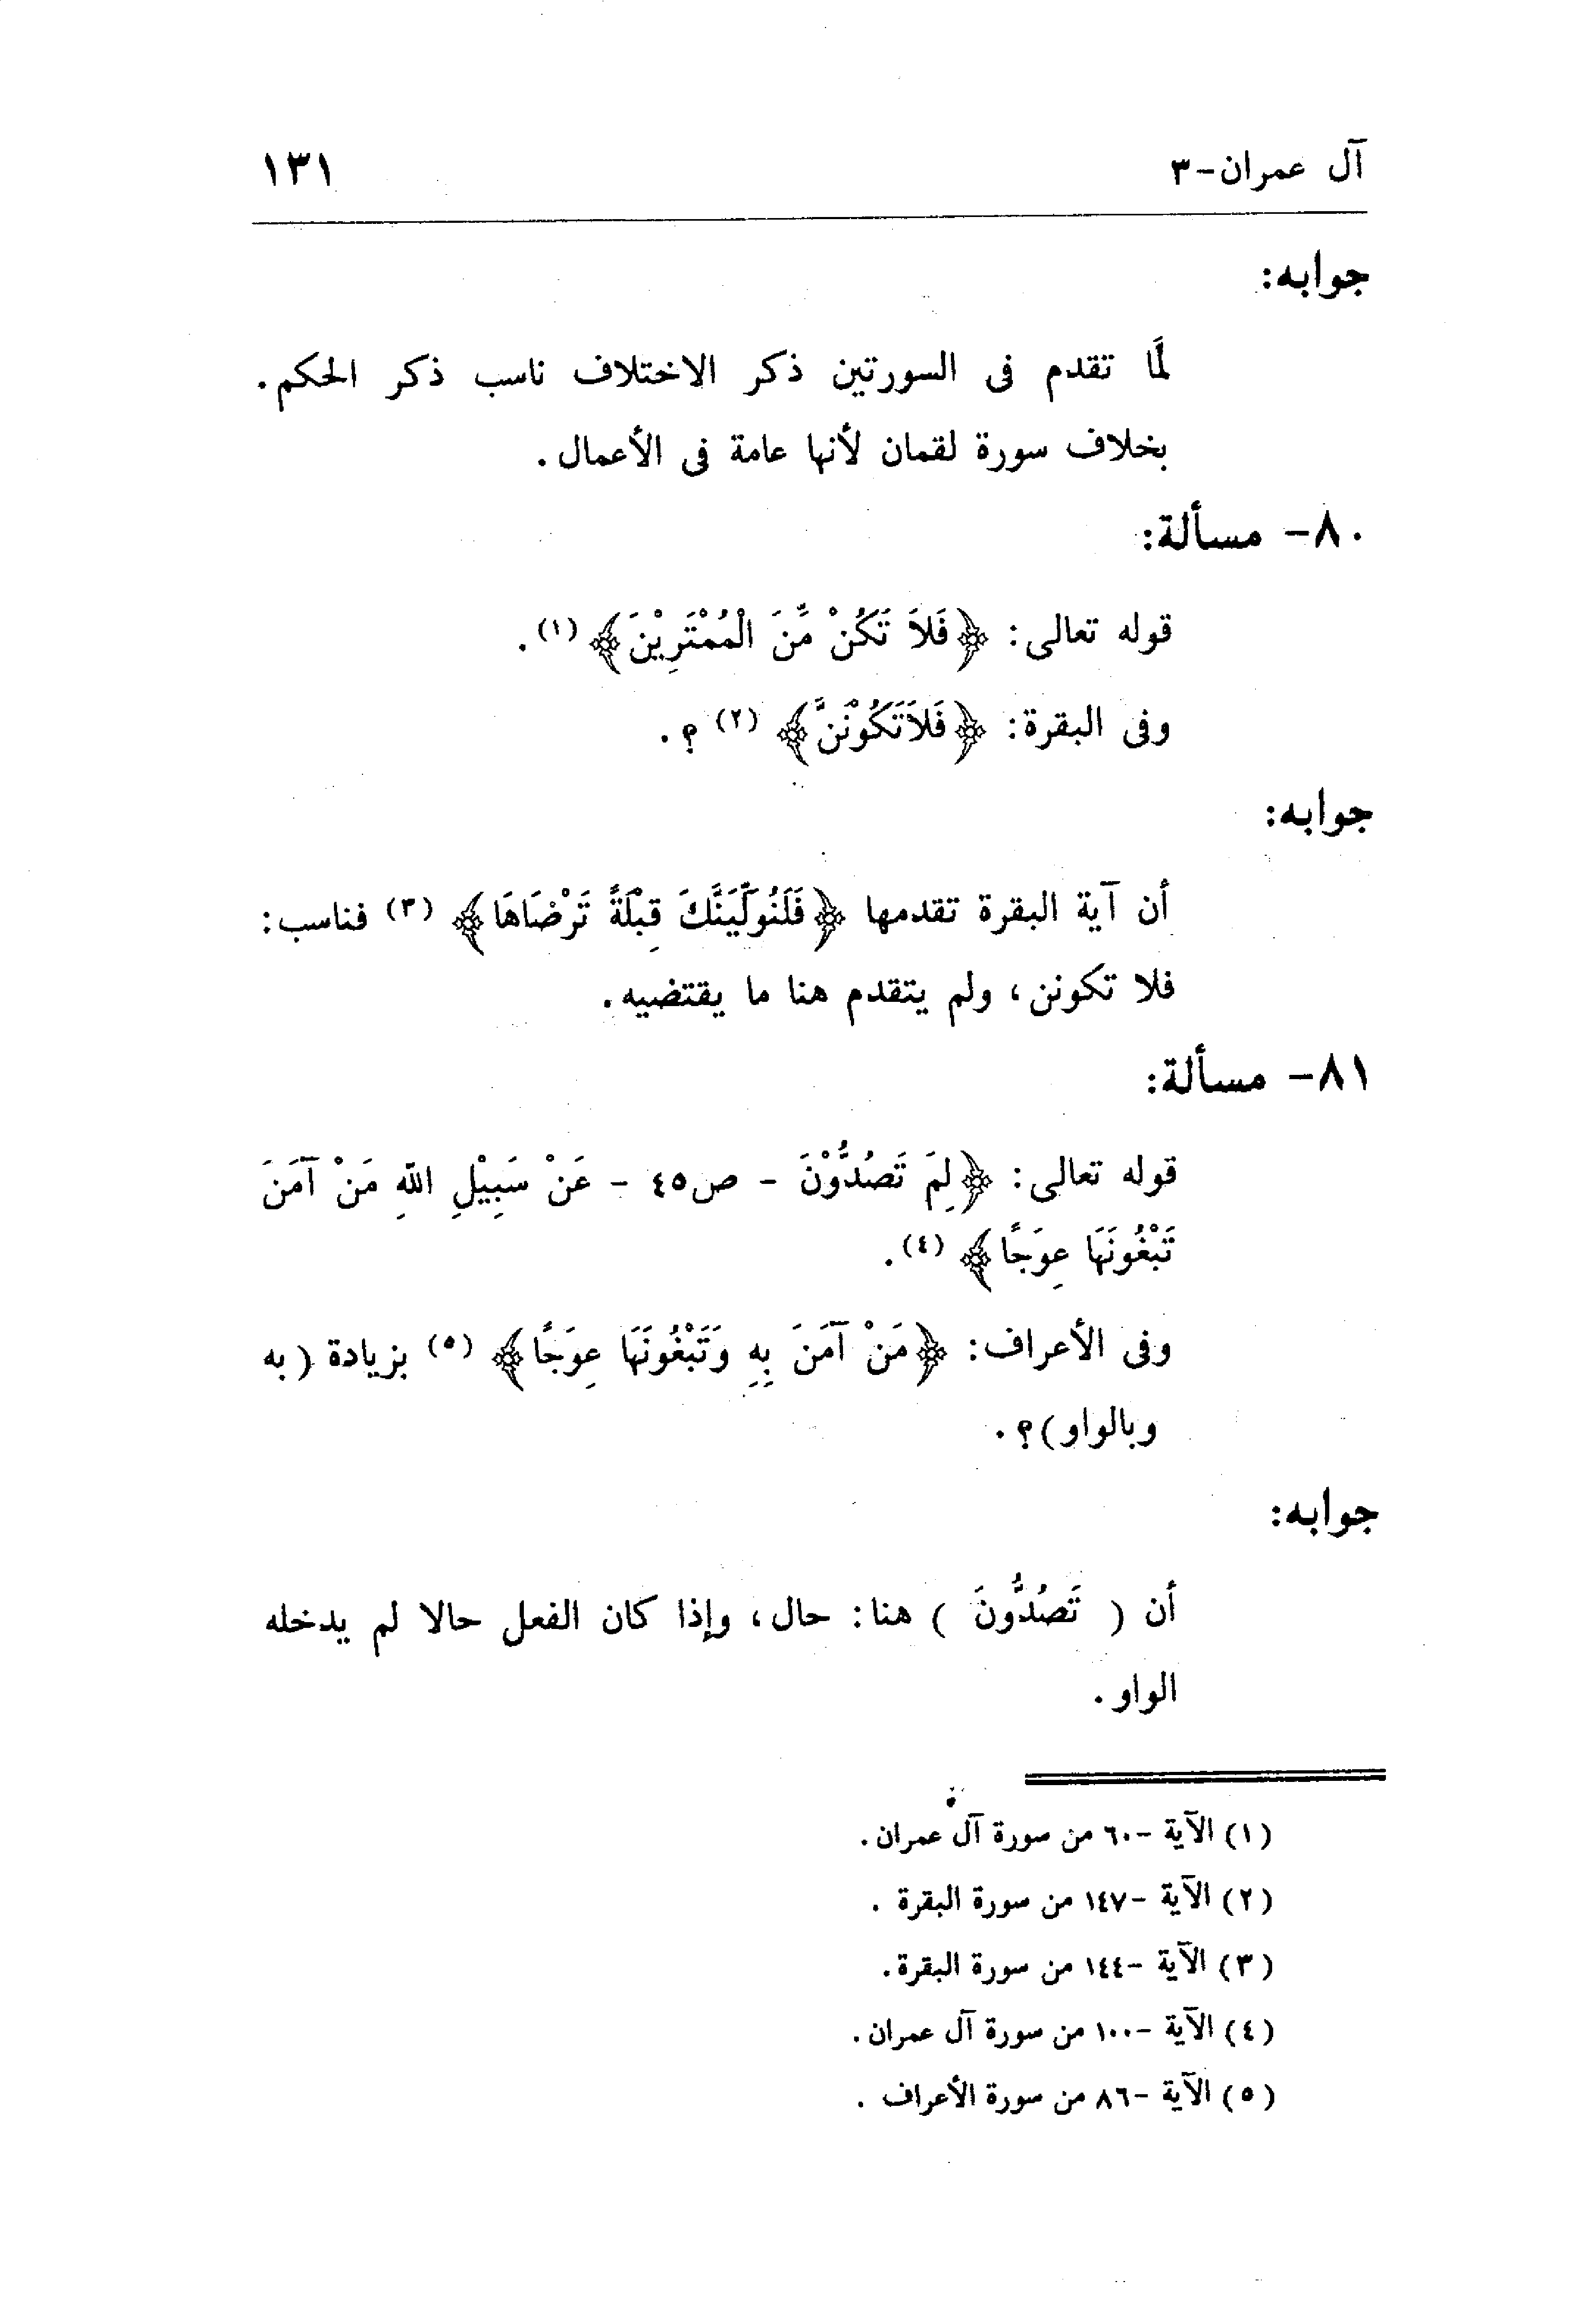 آل عمران-٣ ١٣١
جوابه:
لَّما تقدم فى السورتين ذكر الاختلاف ناسب ذكر الحكم.
بخلاف سورة لقمان لأنها عامة فى الأعمال.
٨٠- مسألة:
قوله تعالى: ﴿فَلاَ تَكُنْ مِّنَ الْمُمْتَرِيْنَ﴾ (١).
وفى البقرة: ﴿فَلاَتَكُوْنَنَّ﴾ (٢) ؟.
جوابه:
أن آية البقرة تقدمها ﴿فَلَنُوَلِّيَنَّكَ قِبْلَةً تَرْضَاهَا﴾ (٣) فناسب:
فلا تكونن، ولم يتقدم هنا ما يقتضيه.
٨١- مسألة:
قوله تعالى: ﴿لِمَ تَصُدُّوْنَ - ص٤٥ - عَنْ سَبِيْلِ اللّهِ مَنْ آمَنَ
تَبْغُونَهَا عِوَجًا﴾ (٤).
وفى الأعراف: ﴿مَنْ آمَنَ بِهِ وَتَبْغُونَهَا عِوَجًا﴾ (٥) بزيادة (به
وبالواو)؟.
جوابه:
أن ( تَصُدُّونَ ) هنا: حال، وإذا كان الفعل حالا لم يدخله
الواو.
(١) الآية -٦٠ من سورة آل عمران.
(٢) الآية -١٤٧ من سورة البقرة .
(٣) الآية -١٤٤ من سورة البقرة.
(٤) الآية -١٠٠ من سورة آل عمران.
(٥) الآية -٨٦ من سورة الأعراف .